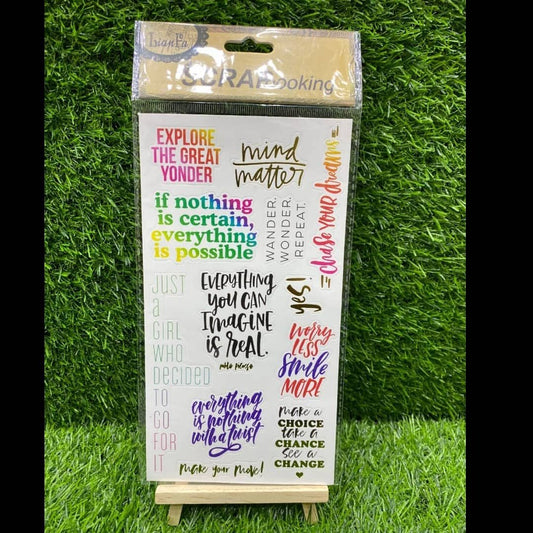 LianFa
SCRAPbooking
EXPLORE
THE GREAT
YONDER
mind
matter
chase YOUR dreams
if nothing
is certain,
everything
is possible
WANDER.
WONDER.
REPEAT.
JUST
a
GIRL
WHO
DECIDED
TO
GO
FOR
IT
EVERYTHING
YOU CAN
IMAGINE
is REAL.
pablo picasso
yes!
worry
LESS
smile
MORE
everything
is nothing
with a twist
make a
CHOICE
take a
CHANCE
see a
CHANGE
make your move!